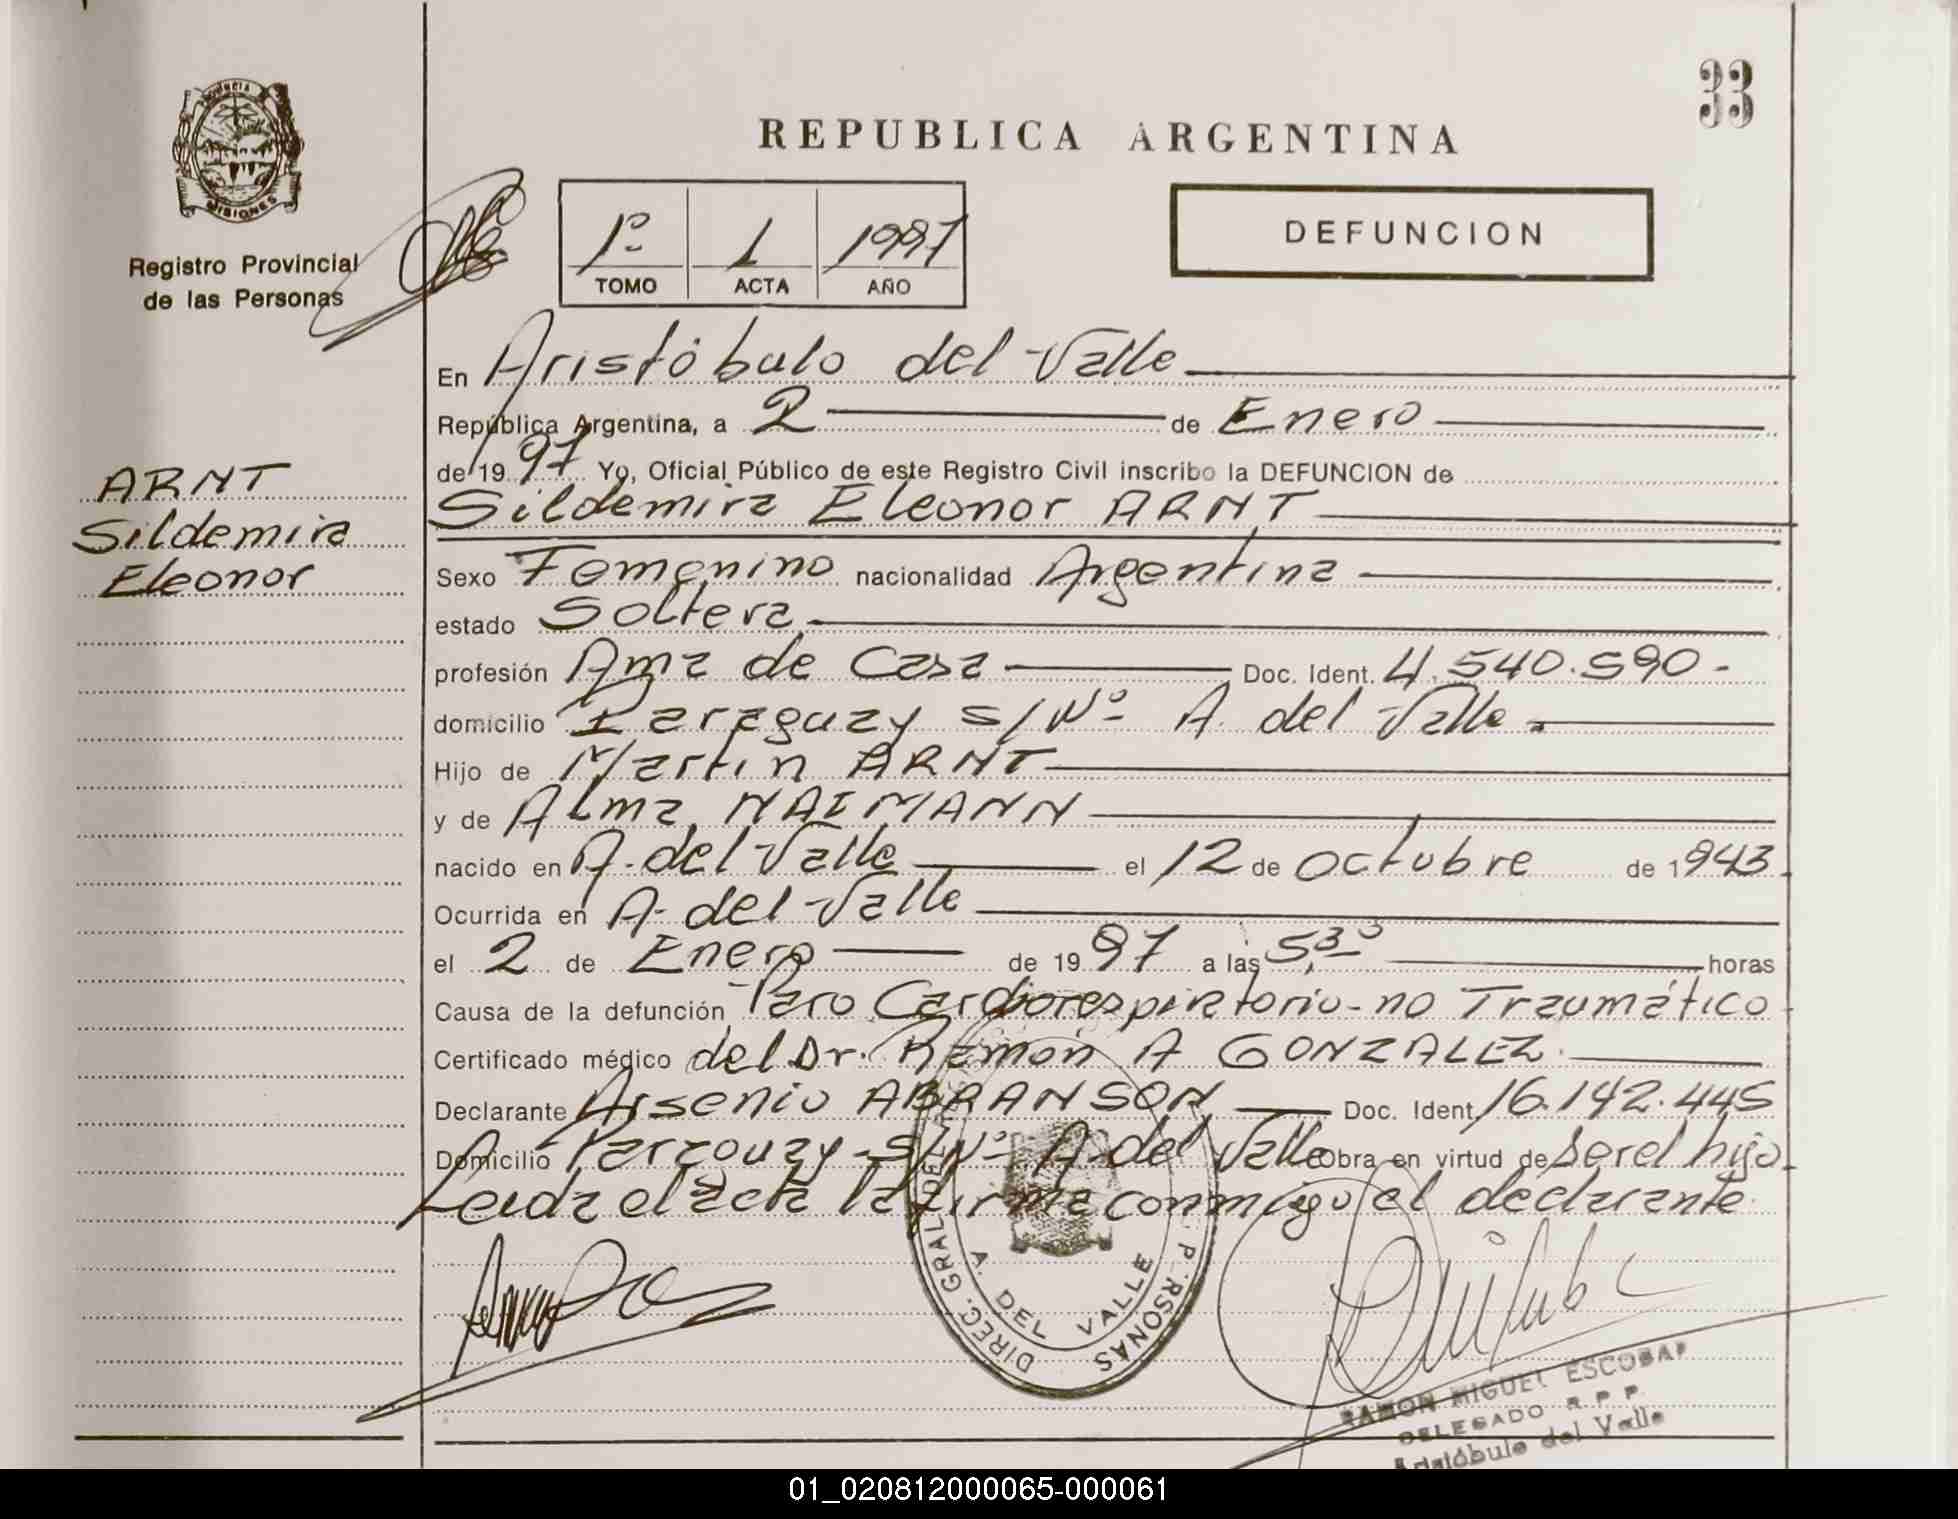 33
PROVINCIA
MISIONES
REPUBLICA ARGENTINA
Registro Provincial
de las Personas
1º 1 1997
TOMO ACTA AÑO
DEFUNCION
En Aristóbulo del Valle
República Argentina, a 2 de Enero
de 19 97 Yo, Oficial Público de este Registro Civil inscribo la DEFUNCION de
ARNT
Sildemira
Eleonor
Sildemira Eleonor ARNT
Sexo Femenino nacionalidad Argentina
estado Soltera
profesión Ama de Casa Doc. Ident. 4.540.590-
domicilio Paraguay s/Nº A. del Valle.
Hijo de Martín ARNT
y de Alma NAIMANN
nacido en A. del Valle el 12 de octubre de 1943
Ocurrida en A. del Valle
el 2 de Enero de 19 97 a las 5,30 horas
Causa de la defunción Paro Cardiorespiratorio-no Traumático
Certificado médico del Dr. Ramón A GONZALEZ.
Declarante Arsenio ABRANSON Doc. Ident. 16.142.445
Domicilio Paraguay-S/Nº A. del Valle Obra en virtud de ser el hijo
Leida el acta la firma conmigo el declarante
DIREC. GRAL. DEL P RSONAS
A. DEL VALLE
RAMON MIGUEL ESCOBAR
DELEGADO R.P.P.
Aristóbulo del Valle
01_020812000065-000061